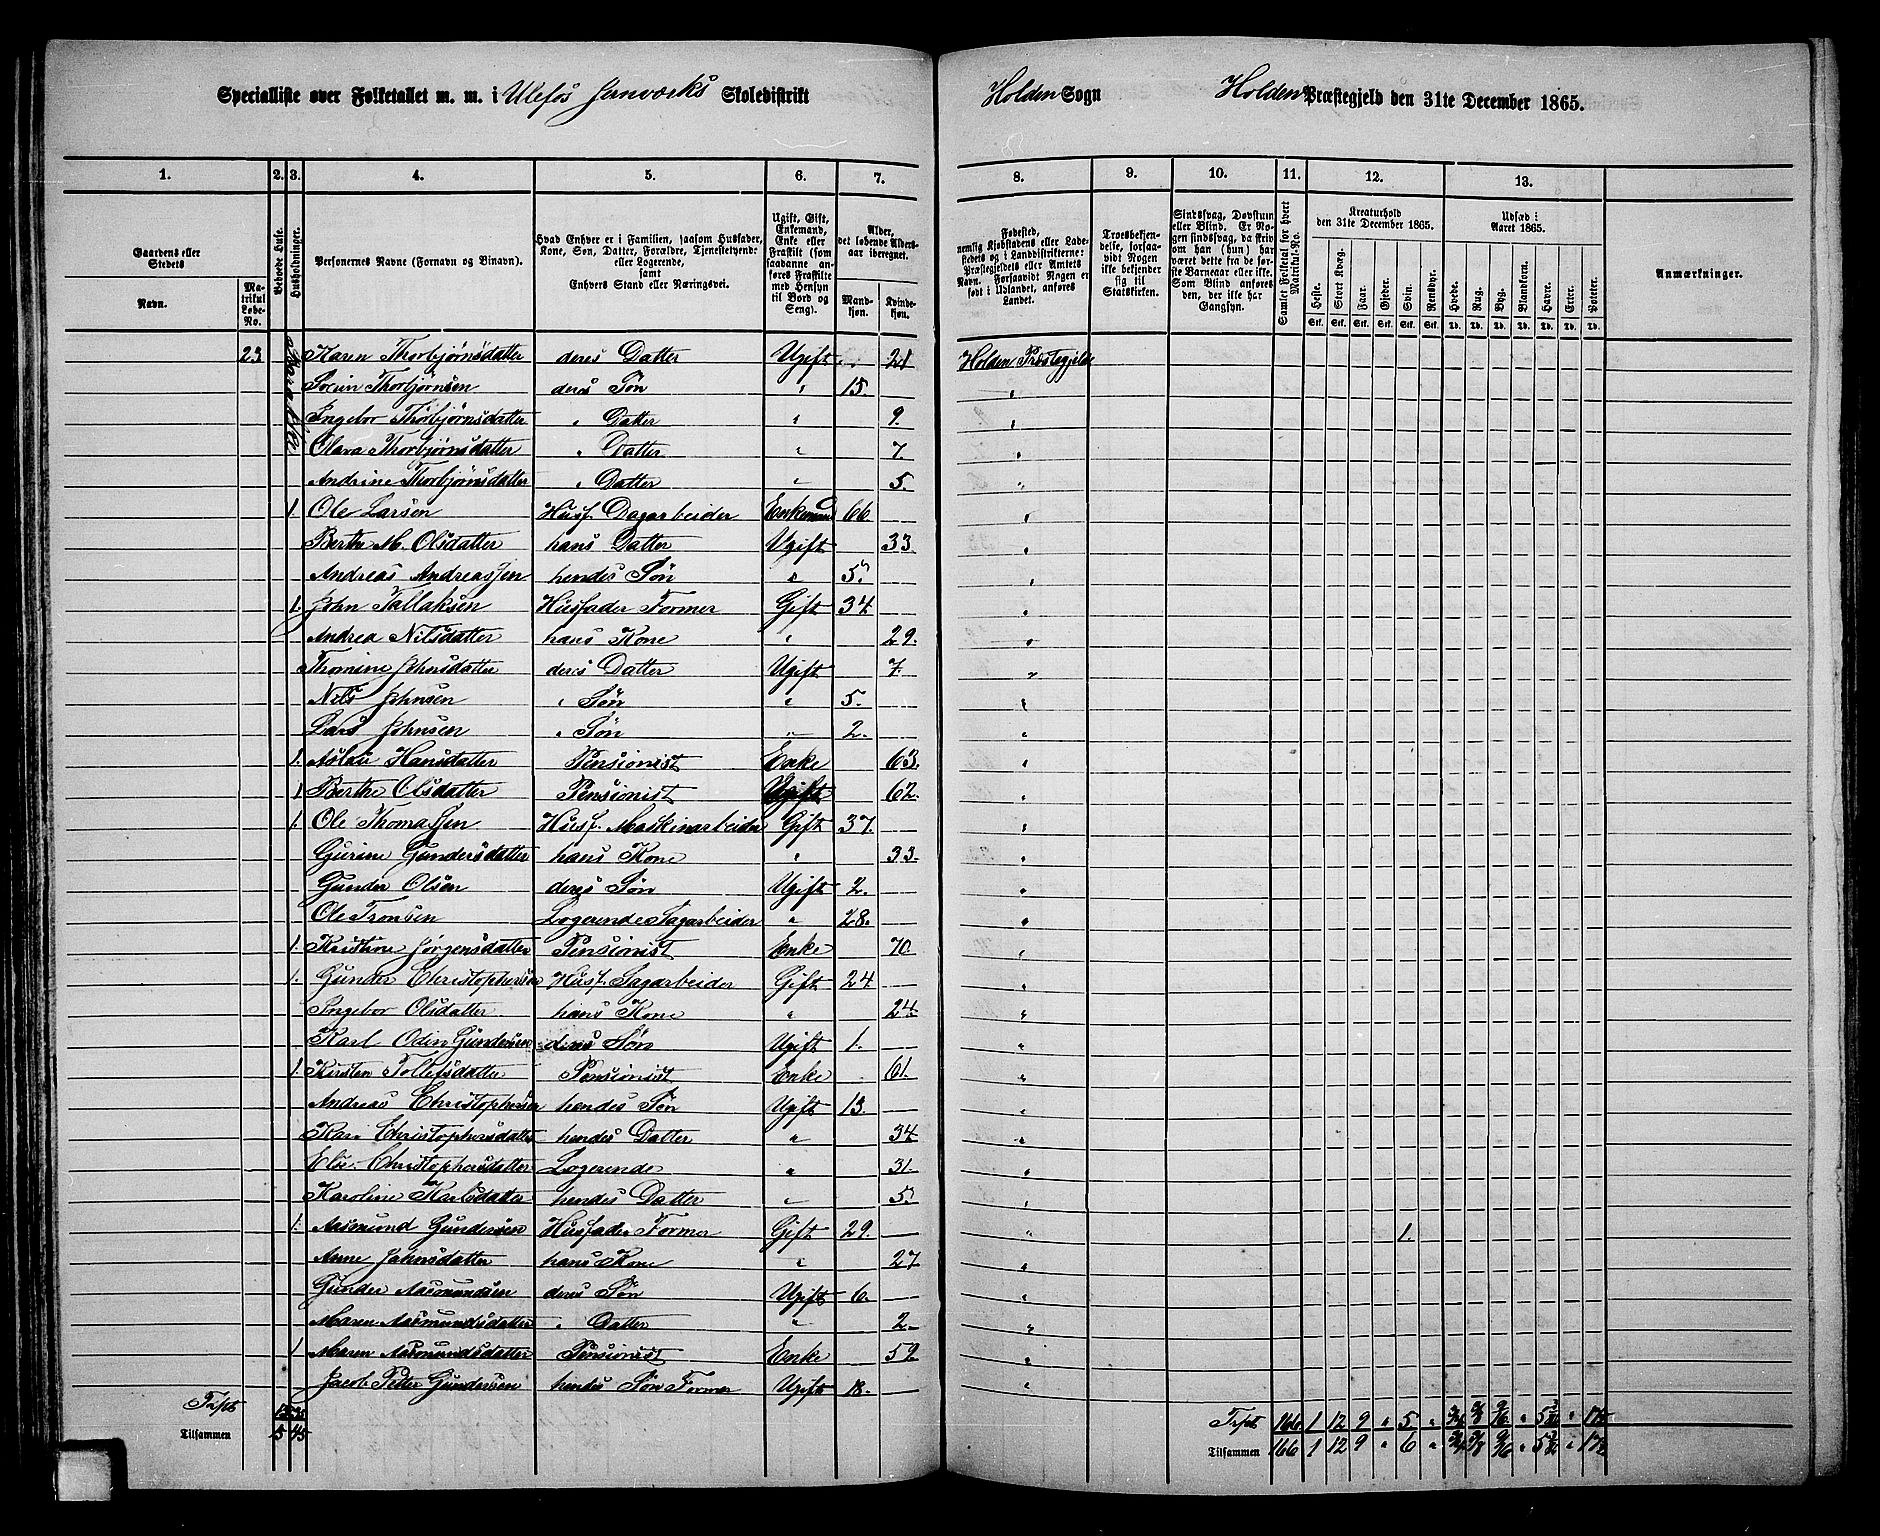 Specialliste over Folketallet m. m. i Ulefos Jernværks Skoledistrikt Holden Sogn Holden Præstegjeld den 31te December 1865.
1. 2. 3. 4. 5. 6. 7. 8. 9. 10. 11. 12. 13.
Gaardens eller Stedets
Navn.
Matrikul Løbe-No.
Beboede Huse.
Husholdninger.
Personernes Navne (Fornavn og Binavn).
Hvad Enhver er i Familien, saasom Husfader, Kone, Søn, Datter, Forældre, Tjenestetyende eller Logerende, samt Enhvers Stand eller Næringsvei.
Ugift, Gift, Enkemand, Enke eller Fraskilt (som saadanne anføres Fraskilte med Hensyn til Bord og Seng).
Alder, det løbende Alders-aar iberegnet.
Mandkjøn. Kvindekjøn.
Fødested, nemlig Kjøbstadens eller Ladestedets eller i Landdistrikterne: Præstegjeldets eller Amtets Navn. Forsaavidt Nogen er født i Udlandet, anføres Landet.
Troesbekjendelse, forsaavidt Nogen ikke bekjender sig til Statskirken.
Sindssvag, Døvstum eller Blind. Er Nogen sindssvag, da skriv om han (hun) har været dette fra de første Barneaar eller ikke. Som Blind anføres den, der ikke har Gangsyn.
Samlet Folketal for hvert Matrikul-No.
Kreaturhold den 31te December 1865.
Heste. Stort Kvæg. Faar. Gjeder. Svin. Rensdyr.
Udsæd i Aaret 1865.
Hvede. Rug. Byg. Blandkorn. Havre. Erter. Poteter.
Stk. Stk. Stk. Stk. Stk. Stk. Td. Td. Td. Td. Td. Td. Td.
Anmærkninger.
23 Karen Thorbjørnsdatter deres Datter Ugift 21 Holden Præstegjeld
Søren Thorbjørnsen deres Søn " 15. "
Ingebor Thorbjørnsdatter " Datter " 9. "
Olava Thorbjørnsdatter " Datter " 7. "
Andrine Thorbjørnsdatter " Datter " 5. "
1. Ole Larsen Husf. Dagarbeider Enkemand 66 "
Berthe M. Olsdatter hans Datter Ugift 33 "
Andreas Andreassen hendes Søn " 5. "
1. John Tallaksen Husfader Former Gift 34 "
Andrea Nilsdatter hans Kone " 29. "
Thomine Johnsdatter deres Datter Ugift 7. "
Nils Johnsen " Søn " 5. "
Lars Johnsen " Søn " 2. "
1. Aslau Hansdatter Pensionist Enke 63. "
1 Berthe Olsdatter Pensionist Ugift 62. "
1. Ole Thomassen Husf. Maskinarbeider Gift 37. "
Gurine Gundersdatter hans Kone " 33. "
Gunder Olsen deres Søn Ugift 2. "
Ole Tronsen Logerende Sagarbeider " 28. "
1. Kristine Jørgensdatter Pensionist Enke 70 "
1. Gunder Christophersen Husf. Sagarbeider Gift 24 "
Ingebor Olsdatter hans Kone " 24. "
Karl Odin Gundersen deres Søn Ugift 1. "
1. Kirsten Tollefsdatter Pensionist Enke 61. "
Andreas Christophersen hendes Søn Ugift 13. "
Kari Christophersdatter hendes Datter " 34 "
Else Christophersdatter Logerende " 31. "
Karoline Karlsdatter hendes Datter " 5 "
1. Aasmund Gundersen Husfader Former Gift 29. " 1.
Anne Jahnsdatter hans Kone " 27 "
Gunder Aasmundsen deres Søn Ugift 6. "
Maren Aasmundsdatter " Datter " 2. "
1 Maren Aasmundsdatter Pensionist Enke 59. "
Jacob Petter Gundersen hendes Søn Former Ugift 18. "
Trspt Trspt 166 1 12 9 " 5 "
Tilsammen 5 45 Tilsammen 166 1 12 9 " 6 "